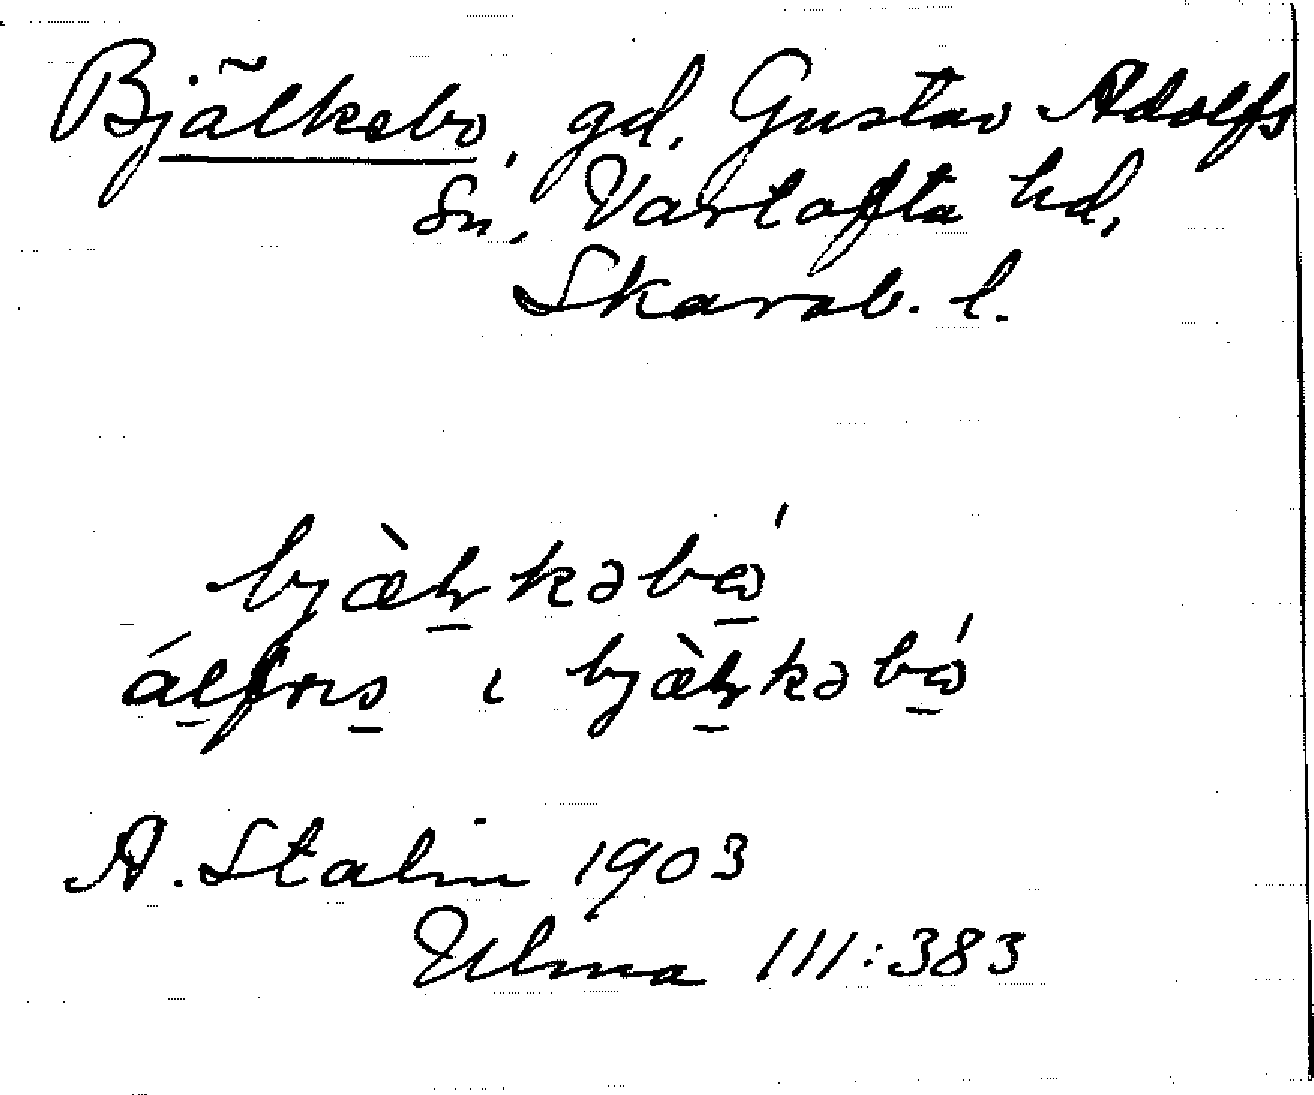 Bjälkebo, gd, Gustav Adolfs
sn, Vartofta hd,
Skarab. l.
bjæ̀l̠kəbώ̠
ál̠frıs̠ ı bjæ̀l̠kəbώ̠
A. Stalin 1903
Ulma 111:383